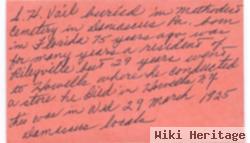 L. H. Vail buried in methodist
cemetery in Damascus Pa. born
in Florida 75 years ago was
for many years a resident of
Rileyville last 29 years went
to Howells where he conducted
a store he died in Howells N.Y
this was in Wed 29 March 1925
Damascus locals
Wiki Heritage